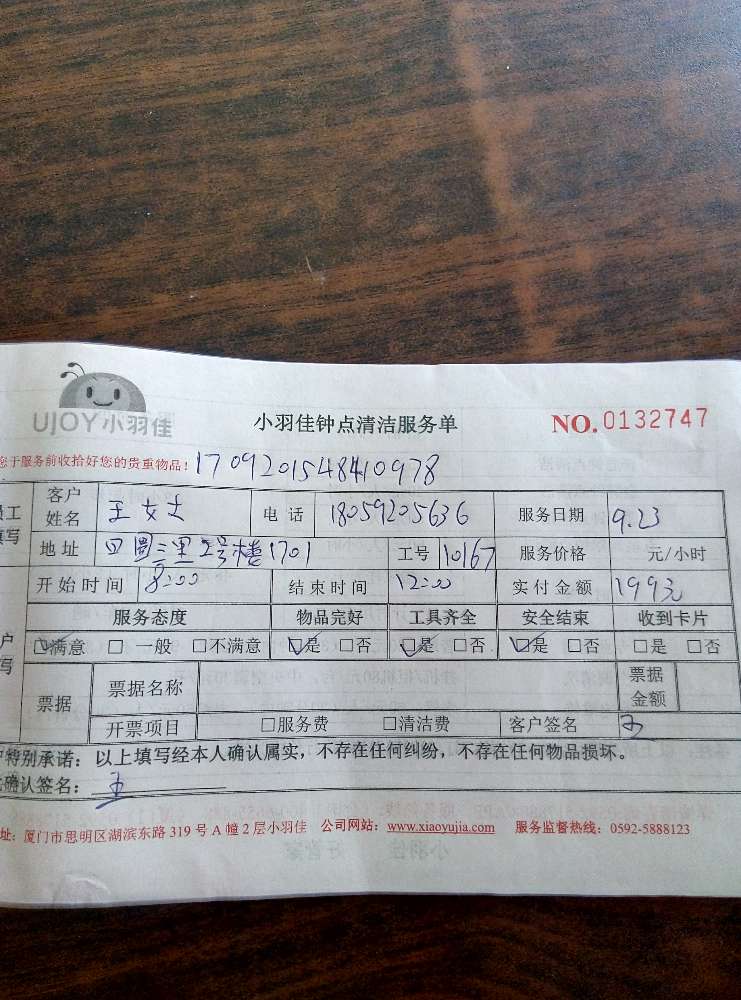 UJOY小羽佳 小羽佳钟点清洁服务单 NO.0132747
您于服务前收拾好您的贵重物品! 1709201548410978
员工填写 客户姓名 王女士 电话 18059205636 服务日期 9.23
地址 三里2号楼1701 工号 10167 服务价格 元/小时
开始时间 8:00 结束时间 12:00 实付金额 199元
服务态度 物品完好 工具齐全 安全结束 收到卡片
户写 ☑满意 □ 一般 □不满意 ☑是 □否 ☑是 □否 ☑是 □否 □是 □否
票据 票据名称 票据金额
开票项目 □服务费 □清洁费 客户签名 王
户特别承诺：以上填写经本人确认属实，不存在任何纠纷，不存在任何物品损坏。
确认签名：王
址：厦门市思明区湖滨东路 319 号 A 幢 2 层小羽佳 公司网站：www.xiaoyujia.com 服务监督热线：0592-5888123